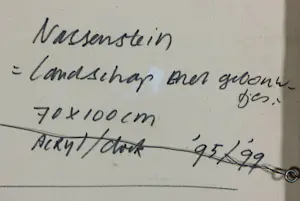 Nassenstein
= Landschap met gebouw-
tjes.
70x100cm
Acryl/doek '95/'99